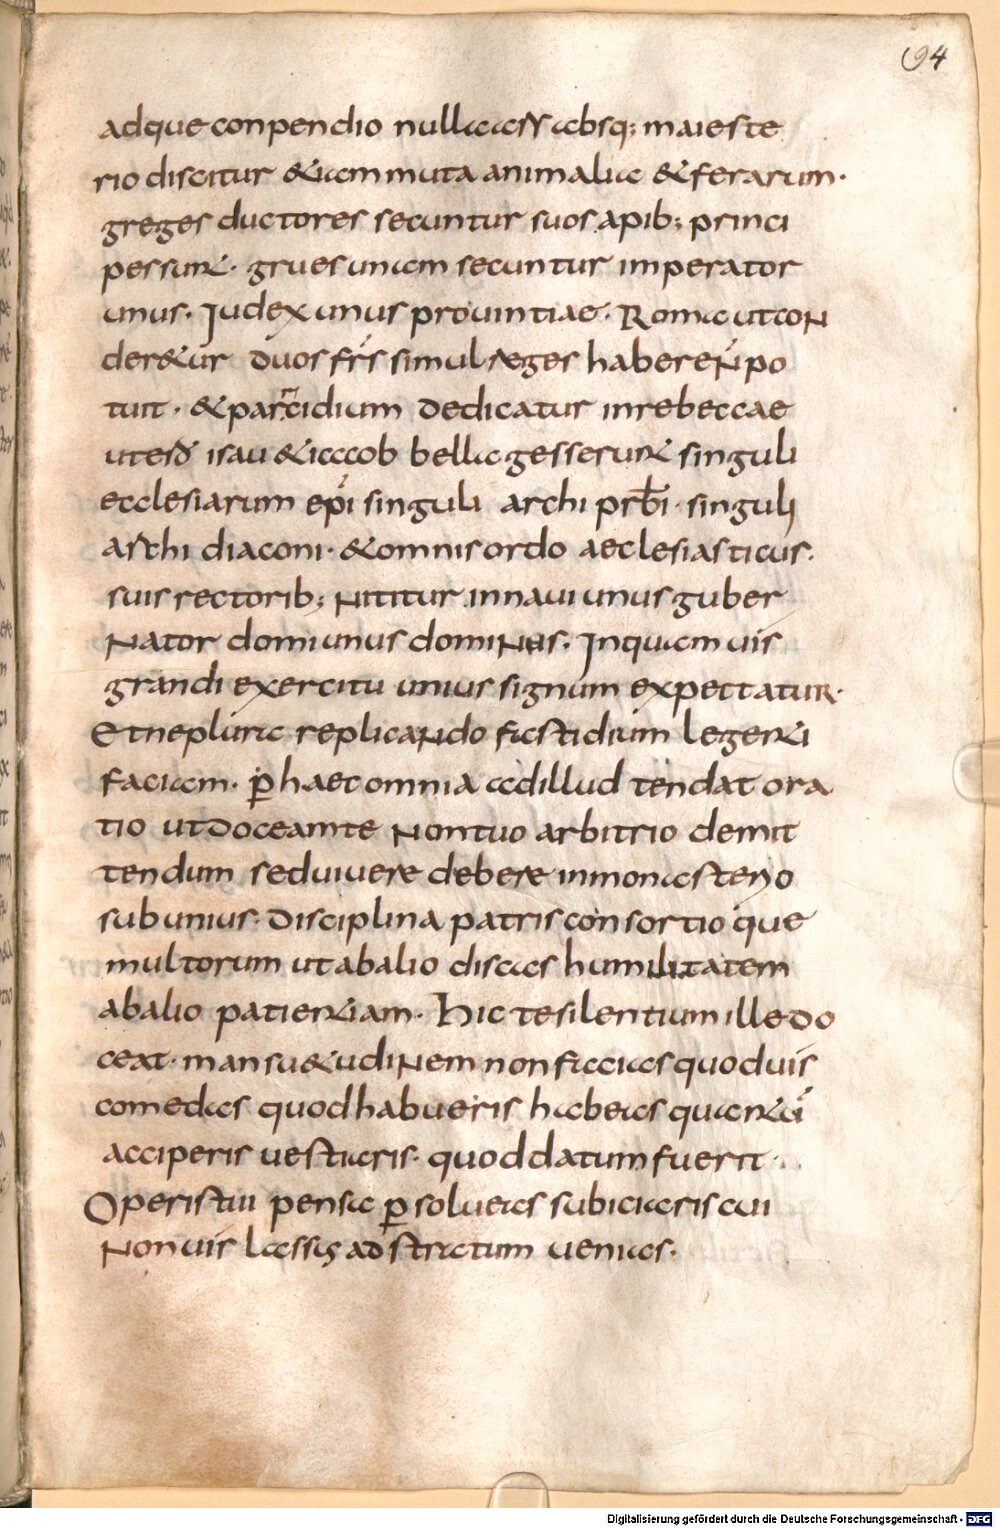 94
adque conpendio nulla ars absq; maieste
rio discitur &iam muta animalia &ferarum·
greges ductores secuntur suos apib; princi
pes sunt· grues unam secuntur imperator
unus· Iudex unus provintiae· Roma ut con
der&ur duos frs simul reges habere n̄ po
tuit· & parricidium dedicatur in rebeccae
utero isau &iacob bella gesserunt singuli
ecclesiarum ep̄i singuli archi prb̄i· singuli
archi diaconi· &omnis ordo aeclesiasticus·
suis rectorib; nititur in naui unus guber
nator domi unus dominus· In quam uis
grandi exercitu unius signum expectatur·
Et ne plura replicando fastidium legenti
faciam· ꝑ haec omnia ad illud tendat ora
tio ut doceam te non tuo arbitrio demit
tendum sed uiuere debere in monasterio
sub unius· disciplina patris consortio que
multorum ut ab alio discas humilitatem
ab alio patientiam· Hic te silentium ille do
ceat· mansu&udinem non facias quod uis
comedas quod habueris habeas quantū
acciperis uestiaris· quod datum fuerit·
Operis tui pensa ꝑsoluas subiciaris cui
non uis lassus ad stratum uenias·
Digitalisierung gefördert durch die Deutsche Forschungsgemeinschaft - DFG